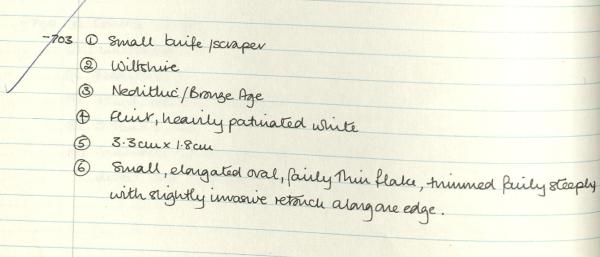 -703 ① Small knife/scraper
② Wiltshire
③ Neolithic/Bronze Age
④ Flint, heavily patinated white
⑤ 3.3cm x 1.8cm
⑥ Small, elongated oval, fairly thin flake, trimmed fairly steeply
with slightly invasive retouch along one edge.